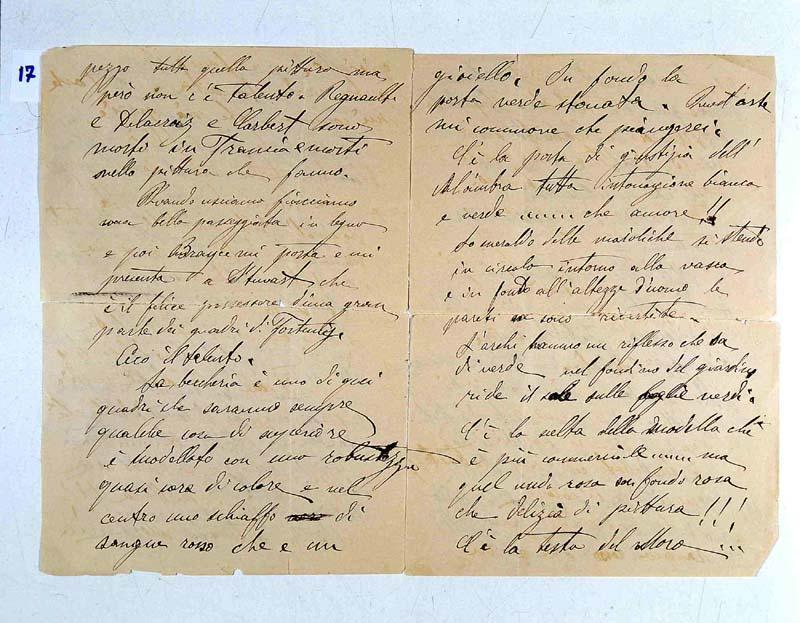 17
pezzo tutta quella pittura ma
però non c'è talento. Regnault
e Delacroix e Corbest sono
morti in Francia e morti
nella pittura che fanno.
Quando usciamo facciamo
una bella passeggiata in legno
e poi mi porta e mi
presenta a Stuvast che
è il felice possessore d'una gran
parte dei quadri di Fortuny.
Ecco il talento.
La beccheria è uno di quei
quadri che saranno sempre
qualche cosa di superiore
è modellato con una robustezza
quasi di colore e nel
centro uno schiaffo di
sangue rosso che è un
gioiello. In fondo la
porta verde stonata. Quest'arte
mi commuove che piangerei.
C'è la porta di giustizia dell'
Alambra tutta intonazione bianca
e verde che amore!!
Lo smeraldo delle maioliche si stende
in circolo intorno alla vasca
e in fondo all'altezza d'uomo le
pareti ne sono rivestite.
L'archi hanno un riflesso che sa
di verde nel fondino del giardino
ride il sole sulle foglie verdi.
C'è la scelta della modella ch'
è più commerciale ma
quel nudo rosa son fondo rosa
che delizia di pittura!!!
C'è la testa del Moro !!